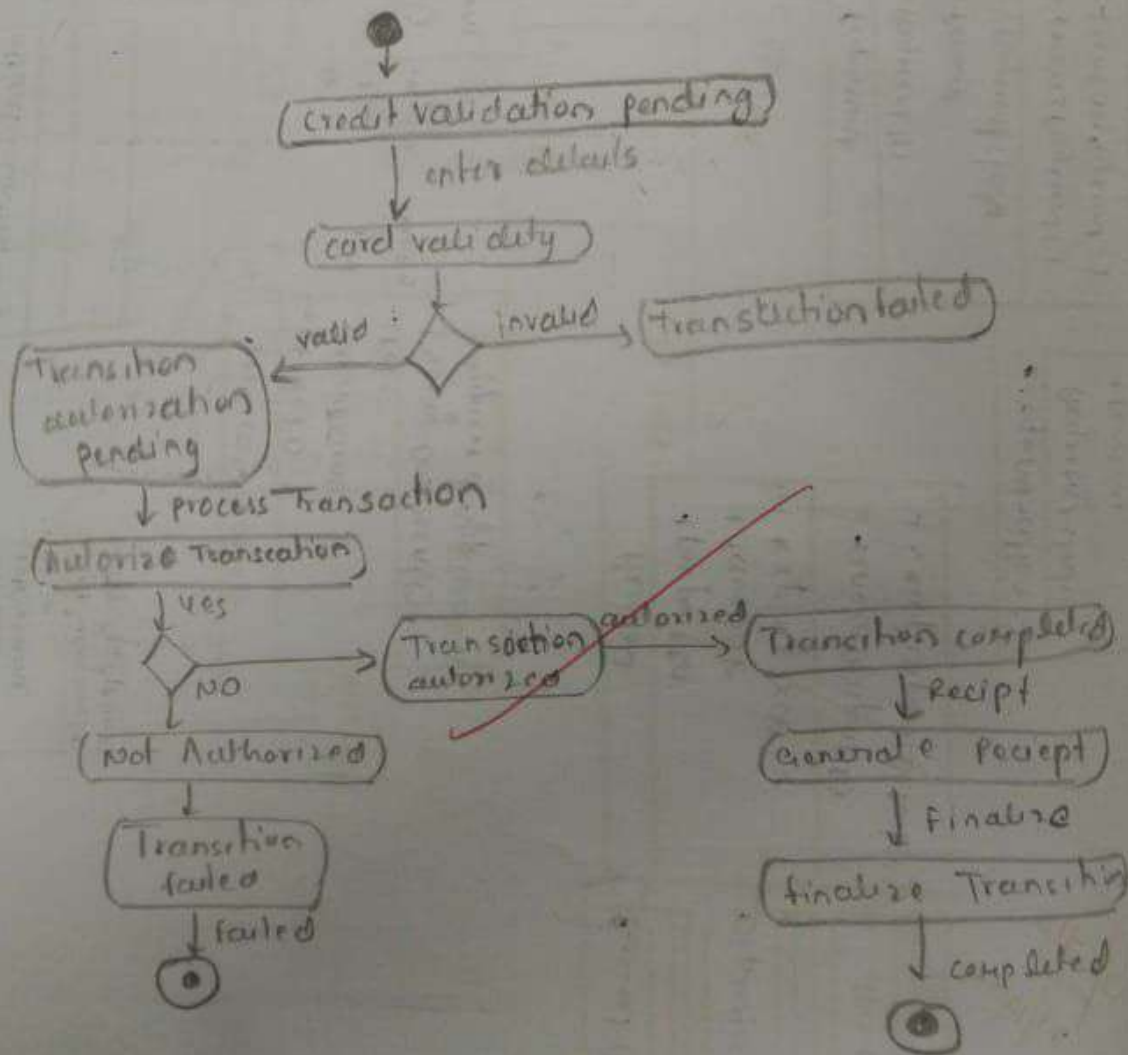 credit validation pending
enter details
card validity
valid
invalid
Transtiction failed
Transition
autorization
pending
process Transaction
Autorize Transcation
yes
NO
Transaction
autorized
autorized
Trancition completed
Recipt
Generate Reciept
Not Authorized
Finalize
Transition
failed
finalize Transition
failed
completed